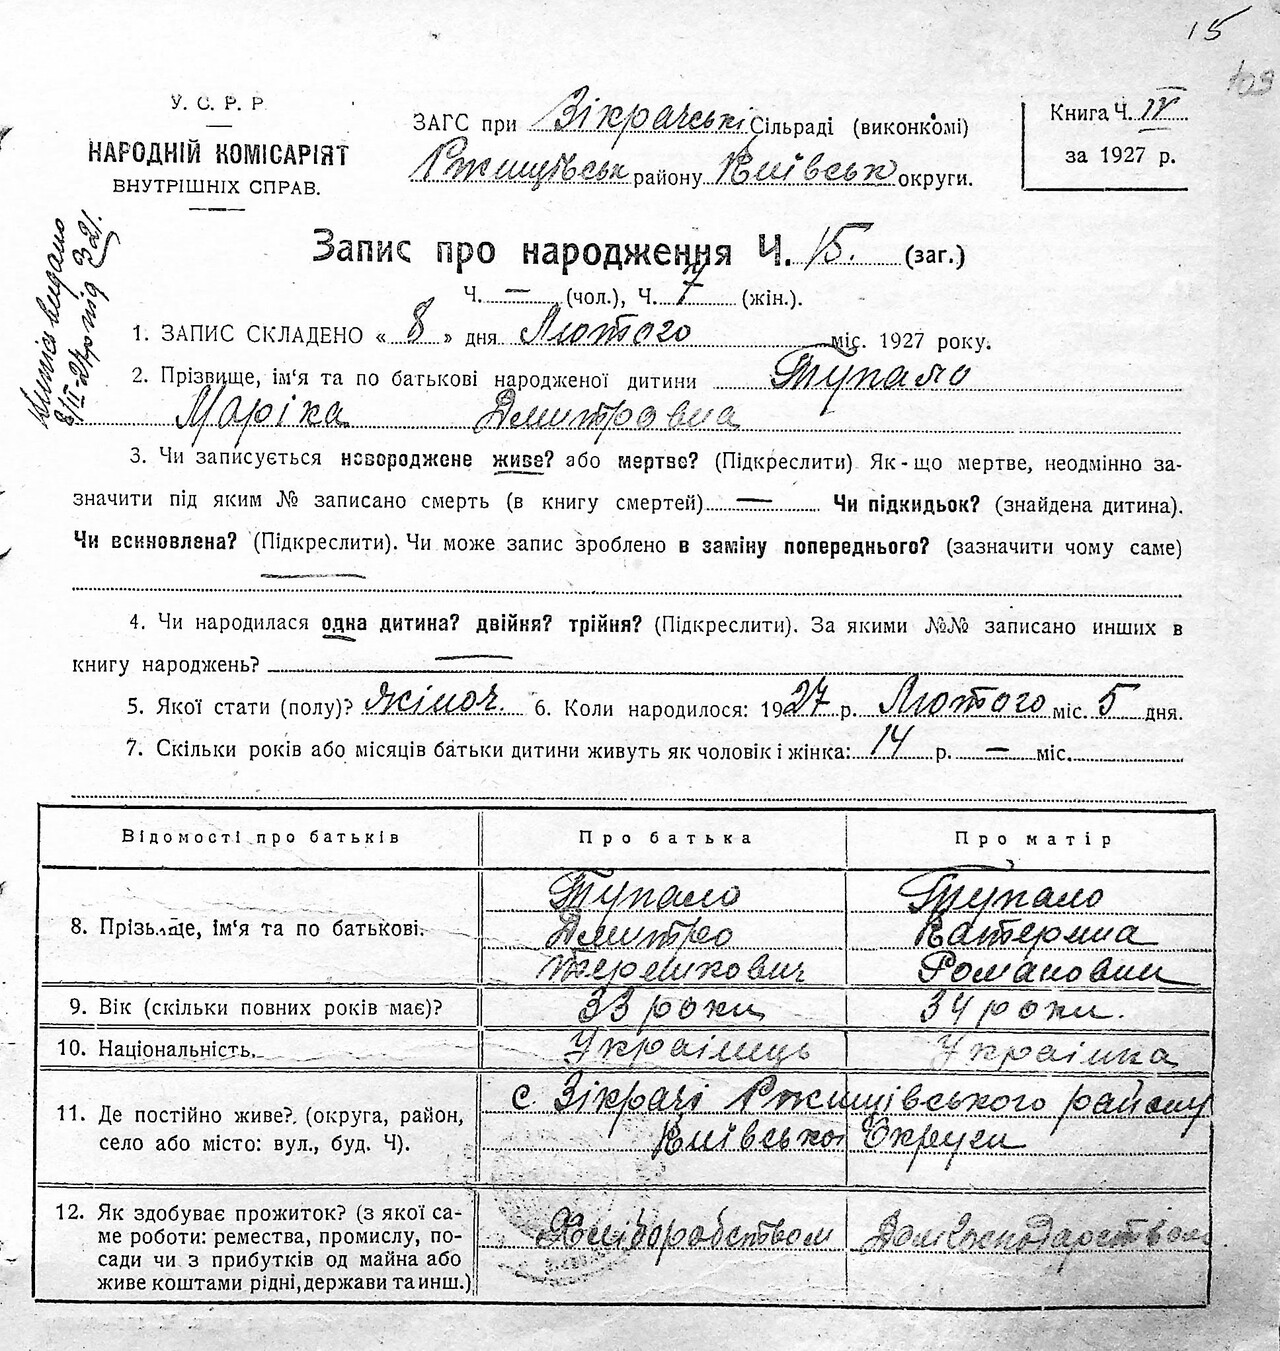 15
109
У. С. Р. Р
НАРОДНІЙ КОМІСАРІЯТ
ВНУТРІШНІХ СПРАВ.
ЗАГС при Зікрачській Сільраді (виконкомі)
Ржищівськ району Київськ округи.
Книга Ч. IV
за 1927 р.
видано
8/II-27р під 321.
Запис про народження Ч. 15. (заг.)
Ч. — (чол.), Ч. 7 (жін.).
1. ЗАПИС СКЛАДЕНО « 8 » дня Лютого міс. 1927 року.
2. Прізвище, ім'я та по батькові народженої дитини Тупало
Маріка Дмитровна
3. Чи записується новороджене живе? або мертве? (Підкреслити) Як-що мертве, неодмінно за-
значити під яким № записано смерть (в книгу смертей) — Чи підкидьок? (знайдена дитина).
Чи всиновлена? (Підкреслити). Чи може запис зроблено в заміну попереднього? (зазначити чому саме)
4. Чи народилася одна дитина? двійня? трійня? (Підкреслити). За якими №№ записано инших в
книгу народжень?
5. Якої стати (полу)? жіноч. 6. Коли народилося: 1927 р. Лютого міс. 5 дня.
7. Скільки років або місяців батьки дитини живуть як чоловік і жінка: 14 р. — міс.
Відомості про батьків
Про батька
Про матір
8. Прізьвище, ім'я та по батькові.
Тупало
Дмитро
Тупало
Катерина
Романовна
9. Вік (скільки повних років має)?
33 роки
34 роки.
10. Національність.
Українець
Українка
11. Де постійно живе? (округа, район,
село або місто: вул., буд. Ч).
с. Зікрачі Ржищівського району
Київської Округи
12. Як здобуває прожиток? (з якої са-
ме роботи: ремества, промислу, по-
сади чи з прибутків од майна або
живе коштами рідні, держави та инш.)
Хліборобством
Домгосподарством